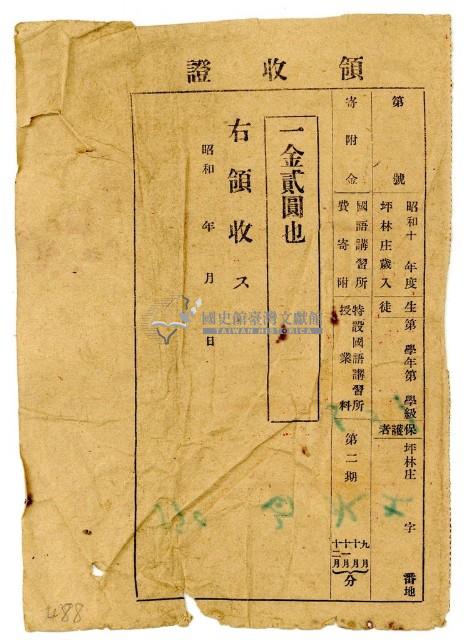 領收證
第 號 昭和十 年度 坪林庄歲入
生徒 第 學年第 學級
保護者 坪林庄 字 番地
寄附金 國語講習所費寄附
特設國語講習所授業料
第二期 九月 十月 十一月 十二月 分
一金貳圓也
右領收ス
昭和 年 月 日
國史館臺灣文獻館
TAIWAN HISTORICA
488